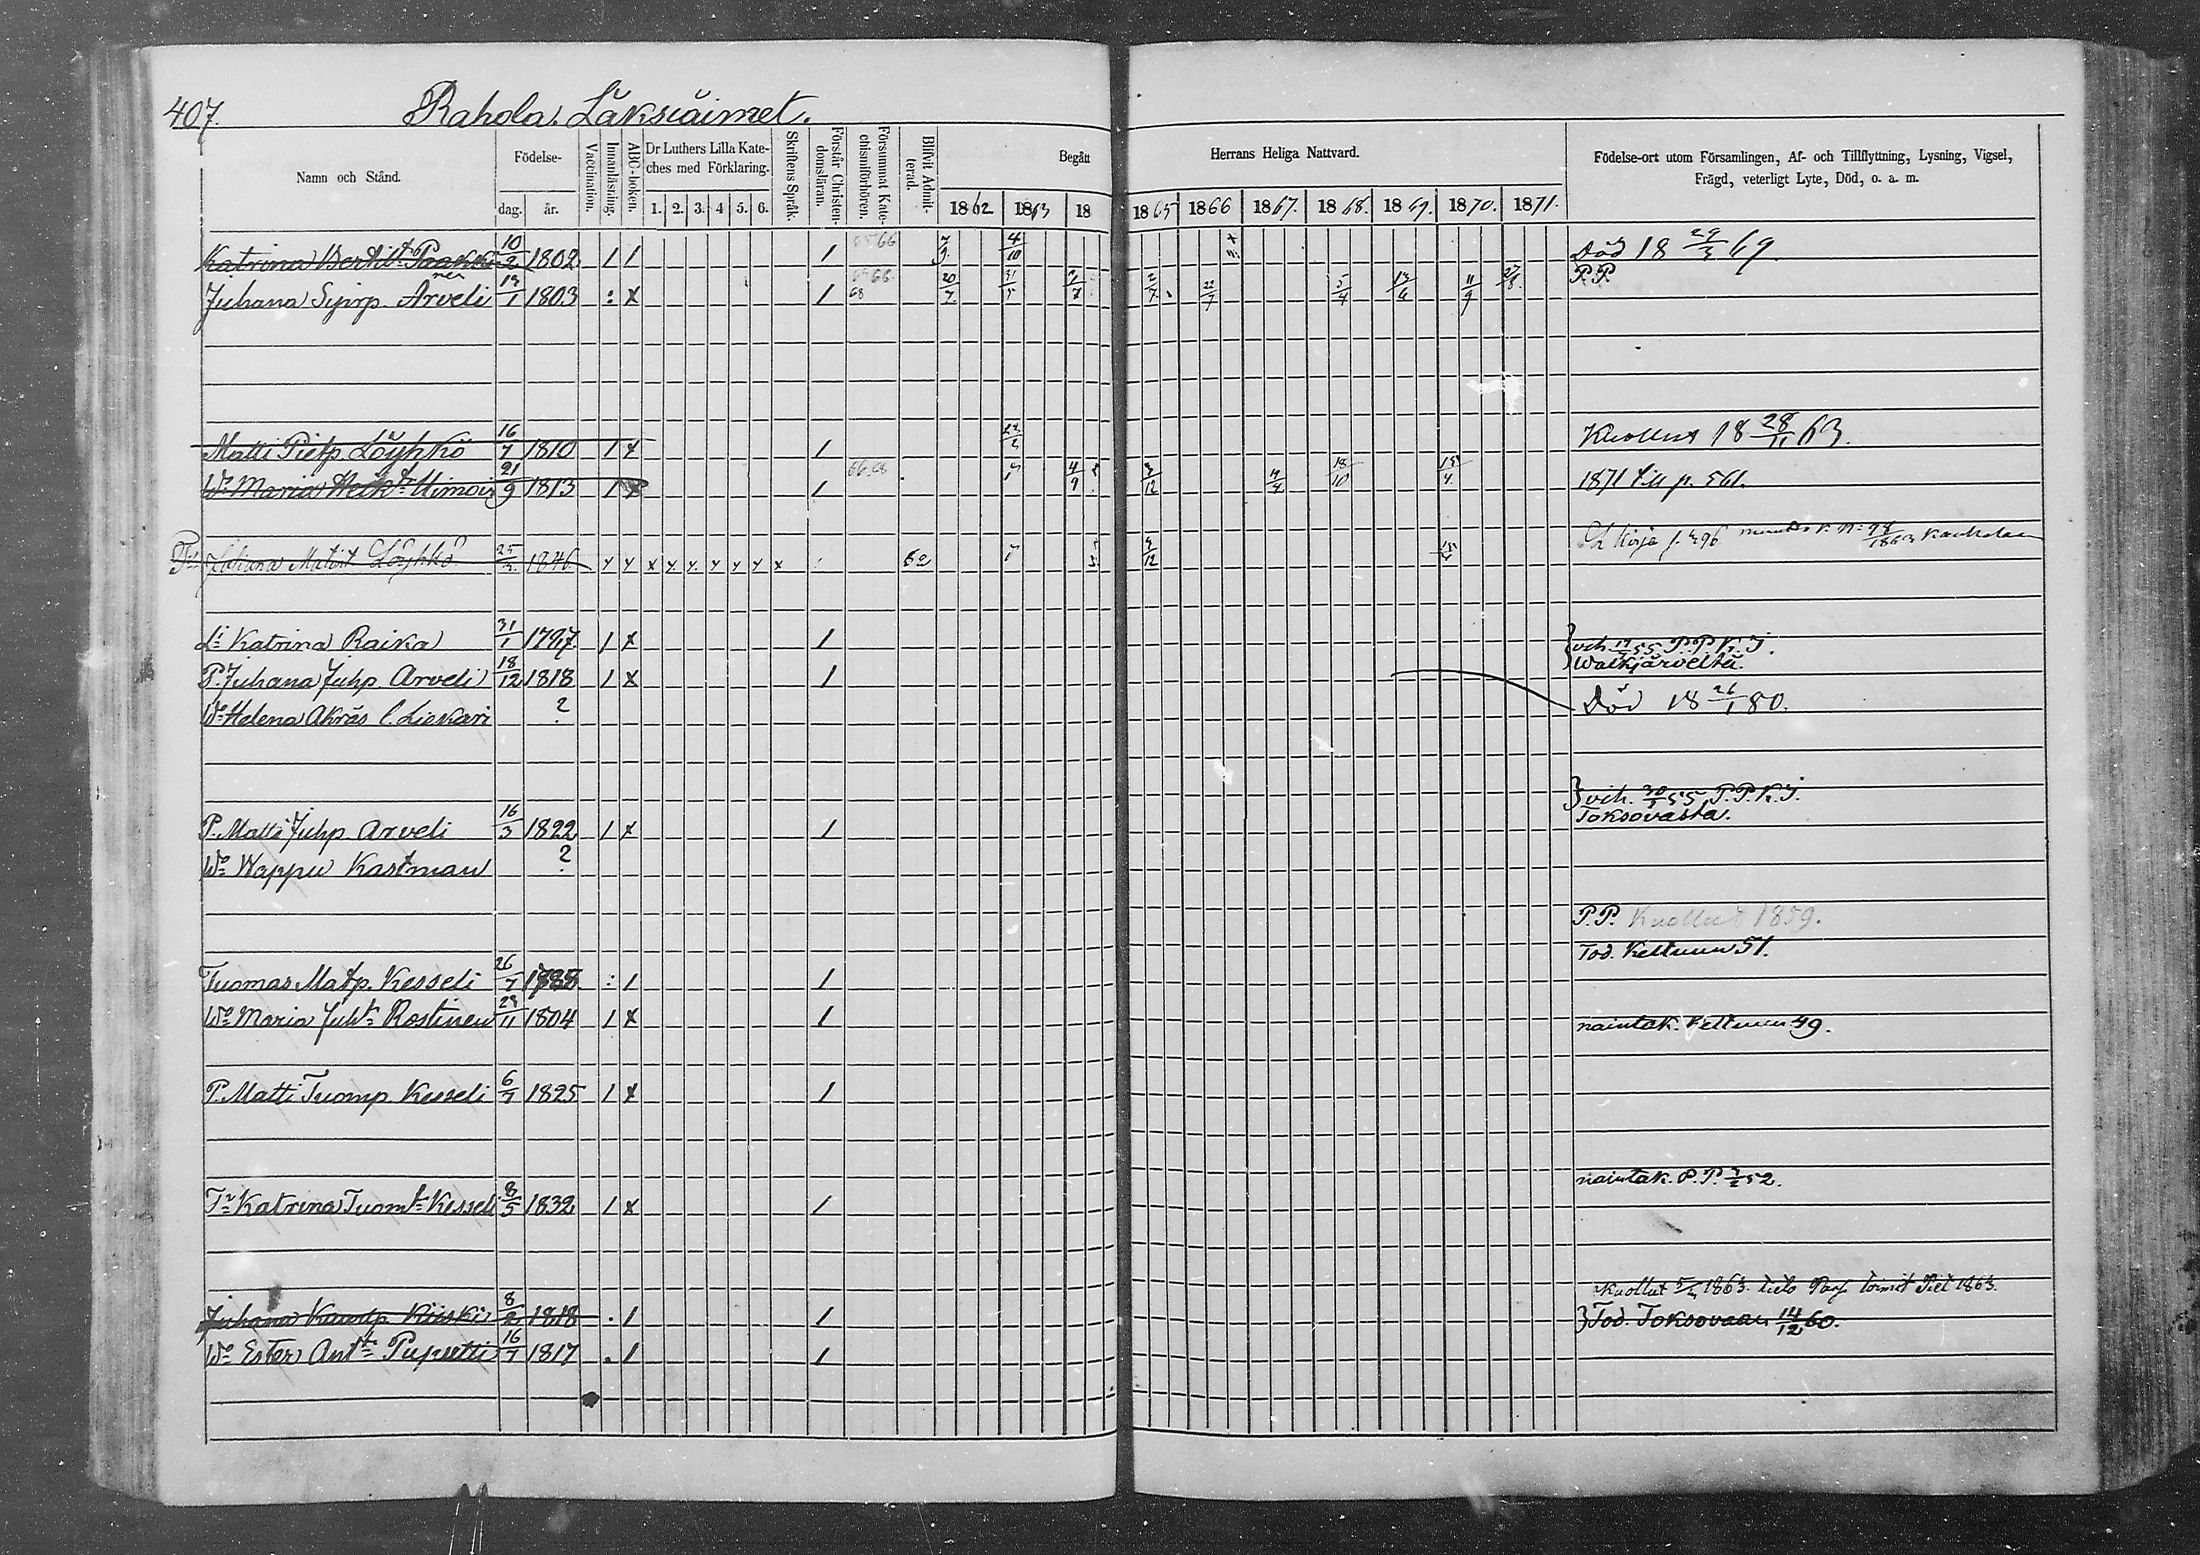 407. Rahola. Läksiäimet.
Namn och Stånd. Födelse- dag. år. Vaccination. Innanläsning. ABC-boken. Dr Luthers Lilla Kateches med Förklaring. 1. 2. 3. 4 5. 6. Skriftens Språk. Förstår Christendomsläran. Försummat Katechismiförhören. Blifvit Admitterad. Begått Herrans Heliga Nattvard. 1862 1863 18 1865 1866 1867. 1868. 1869. 1870. 1871. Födelse-ort utom Församlingen, Af- och Tillflyttning, Lysning, Vigsel, Frägd, veterligt Lyte, Död, o. a. m.
Katrina Bertilt. Paakkinen 10/2 1802 1 1 1 66 4/10 Död 18 29/3 69.
Juhana Syirp. Arveli 19/1 1803 : x 1 66 68 20/7 2/7 22/7 5/4 13/6 11/9 27/8 P.P.
Matti Pietp. Löyhkö 16/7 1810 1 x 1 Kuollut 18 28/11 63.
Wo Maria Heikt. Uimoin 21/9 1813 1 x 1 66.68 4/9 3/12 4/4 18/10 15/4 1871 till p. 561.
Juhana Matist. Löyhkö 25/3 1846 x x x x x x x x x 62 3/12 15/4 Kirja 1863 Kaukolaan
Li Katrina Raika 31/1 1797. 1 x 1
P. Juhana Juhp. Arveli 18/12 1818 1 x 1 } vih. 55 P.P.K.I. Walkjärveltä.
Wo Helena Akräs l. Liskari ? Död 18 26/1 80.
P. Matti Juhp. Arveli 16/3 1822 1 x 1 } vih. 30/ 55 P.P.K.I. Toksovasta.
Wo Wappu Kastman ?
P.P. Kuollut 1859.
Tod. Kettuun 51.
Tuomas Matp. Kesseli 26/7 : 1 1
Wo Maria Juht. Rostinen 28/11 1804 1 x 1 naintak. Kettuun 49.
P. Matti Tuomp. Kesseli 6/7 1825 1 x 1
Tr Katrina Tuomt. Kesseli 8/5 1832 1 x 1 naintak. P.P. 52.
Kuollut 1863. 1863.
Juhana Kiiski 8/2 1818 . 1 1 } Tod. Toksovaan 14/12 60.
Wo Ester Antt. Puputti 16/7 1817 . 1 1